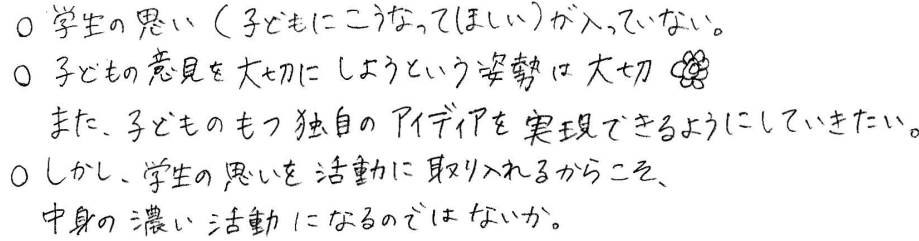 ○ 学生の思い（子どもにこうなってほしい）が入っていない。
○ 子どもの意見を大切にしようという姿勢は大切
また、子どものもつ独自のアイディアを実現できるようにしていきたい。
○ しかし、学生の思いを活動に取り入れるからこそ、
中身の濃い活動になるのではないか。